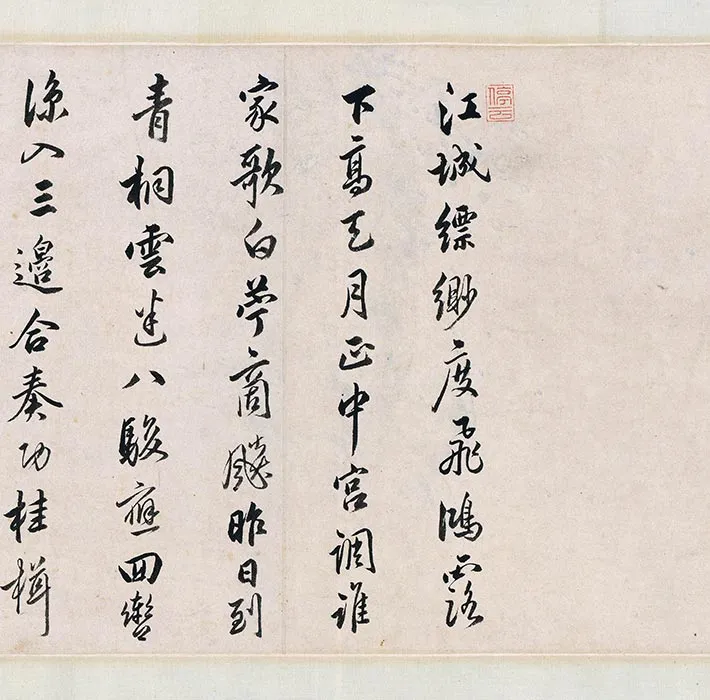 停云
江城縹緲度飛鴻露
下高天月正中宮調誰
家歌白苧商飈昨日到
青桐雲迷八駿應回轡
涼入三邊合奏功桂楫